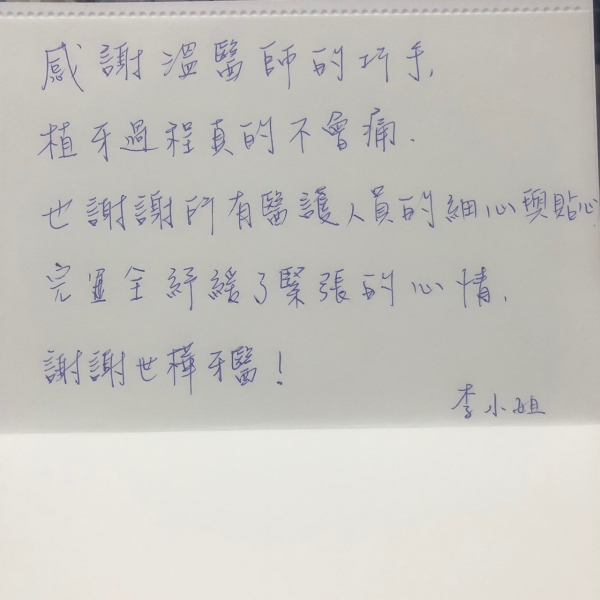 感謝溫醫師的巧手,
植牙過程真的不會痛.
也謝謝所有醫護人員的細心與貼心
完全紓緩了緊張的心情,
謝謝世樺牙醫!
李小姐